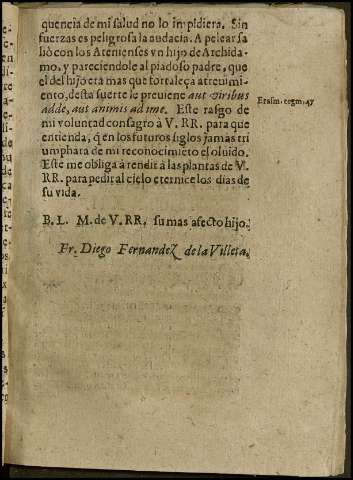 quencia de mi salud no lo impidiera. Sin
fuerzas es peligrosa la audacia. A pelear sa
lió con los Atenienses vn hijo de Archida-
mo, y pareciendole al piadoso padre, que
el del hijo era mas que fortaleça atreuimi
ento, desta suerte le preuiene aut viribus
adde, aut animis adime. Este rasgo de
Erasm. regm. 47
mi voluntad consagro à V. RR. para que
entienda, q̃ en los futuros siglos jamas tri
umphara de mi reconocimiẽto el oluido.
Este me obliga à rendir à las plantas de V.
RR. para pedir al cielo eternice los dias de
su vida.
B. L. M. de V. RR. su mas afecto hijo.
Fr. Diego Fernandez de la Villeta.